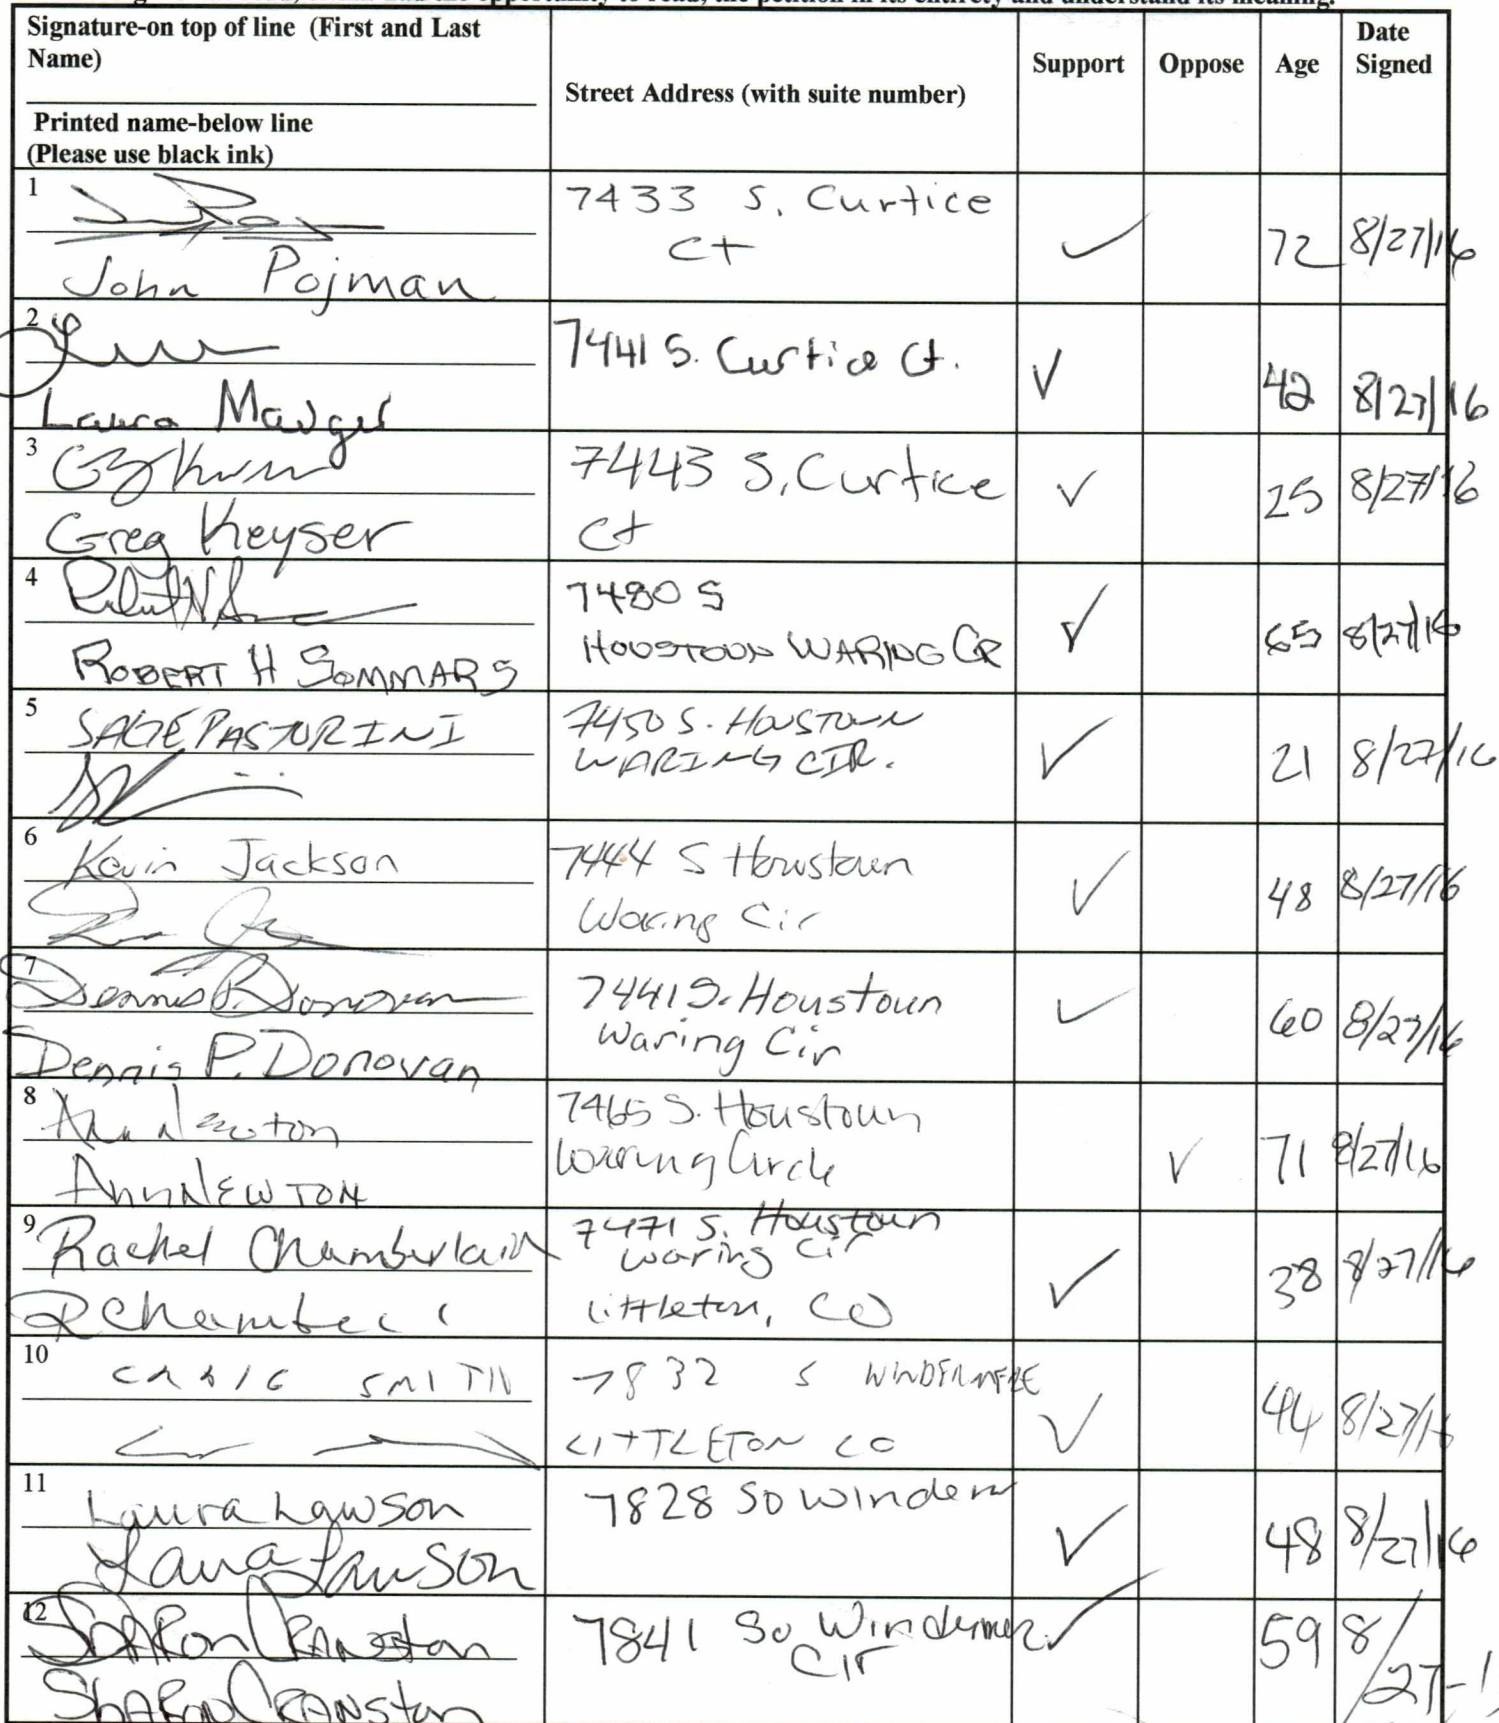 Signature-on top of line (First and Last
Name)
Printed name-below line
(Please use black ink)
Street Address (with suite number)
Support
Oppose
Age
Date
Signed
1
John Pojman
7433 S. Curtice
Ct
72
8/27/16
2
Laura
7441 S. Curtice Ct.
42
8/27/16
3
Greg Keyser
7443 S, Curtice
Ct
25
8/27/16
4
ROBERT H SOMMARS
7480 S
HOUSTOUN WARING CR
65
8/27/16
5
SAGE PASTORINI
7450 S. HOUSTOUN
WARING CIR.
21
8/27/16
6
Kevin Jackson
7444 S Houstoun
Waring Cir
48
8/27/16
7
Dennis P. Donovan
Dennis P. Donovan
7441 S. Houstoun
Waring Cir
60
8/27/16
8
Ann Newton
Ann NEWTON
7465 S. Houstoun
Waring Circle
71
8/27/16
9
Rachel Chamberlain
7471 S. Houstoun
Waring Cir
Littleton, CO
38
8/27/16
10
CRAIG SMITH
7832 S WINDERMERE
LITTLETON CO
44
8/27/16
11
Laura Lawson
Laura Lawson
7828 So Winderm
48
8/27/16
12
SHARon CRANston
SHARon CRANston
7841 So Windermere
Cir
59
8/
27-1